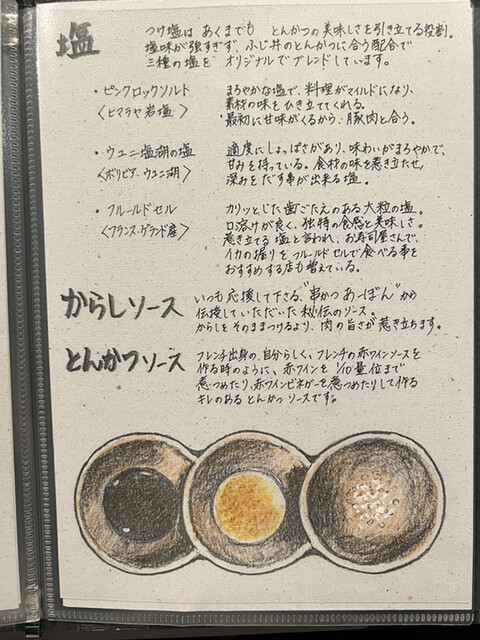 塩
つけ塩は あくまでも とんかつの美味しさを引き立てる役割。
塩味が強すぎず、ふじ井のとんかつに合う配合で
三種の塩を オリジナルでブレンドしています。
・ピンクロックソルト
〈ヒマラヤ岩塩〉
まろやかな塩で、料理がマイルドになり、
素材の味をひき立ててくれる。
最初に甘味がくるから、豚肉と合う。
・ウユニ塩湖の塩
〈ボリビア・ウユニ湖〉
適度にしょっぱさがあり、味わいがまろやかで、
甘みを持っている。食材の味を惹き立たせ、
深みをだす事が出来る塩。
・フルールドセル
〈フランス・ゲランド産〉
カリッとした歯ごたえのある大粒の塩。
口溶けが良く、独特の食感と美味しさ。
惹き立てる塩と言われ、お寿司屋さんで、
イカの握りをフルールドセルで食べる事を
おすすめする店も増えている。
からしソース
いつも応援して下さる、"串かつあーぼん"から
伝授していただいた秘伝のソース。
からしをそのままつけるより、肉の旨さが惹き立ちます。
とんかつソース
フレンチ出身の、自分らしく、フレンチの赤ワインソースを
作る時のように、赤ワインを 1/10量位まで
煮つめたり、赤ワインビネガーを煮つめたりして作る
キレのある とんかつソースです。